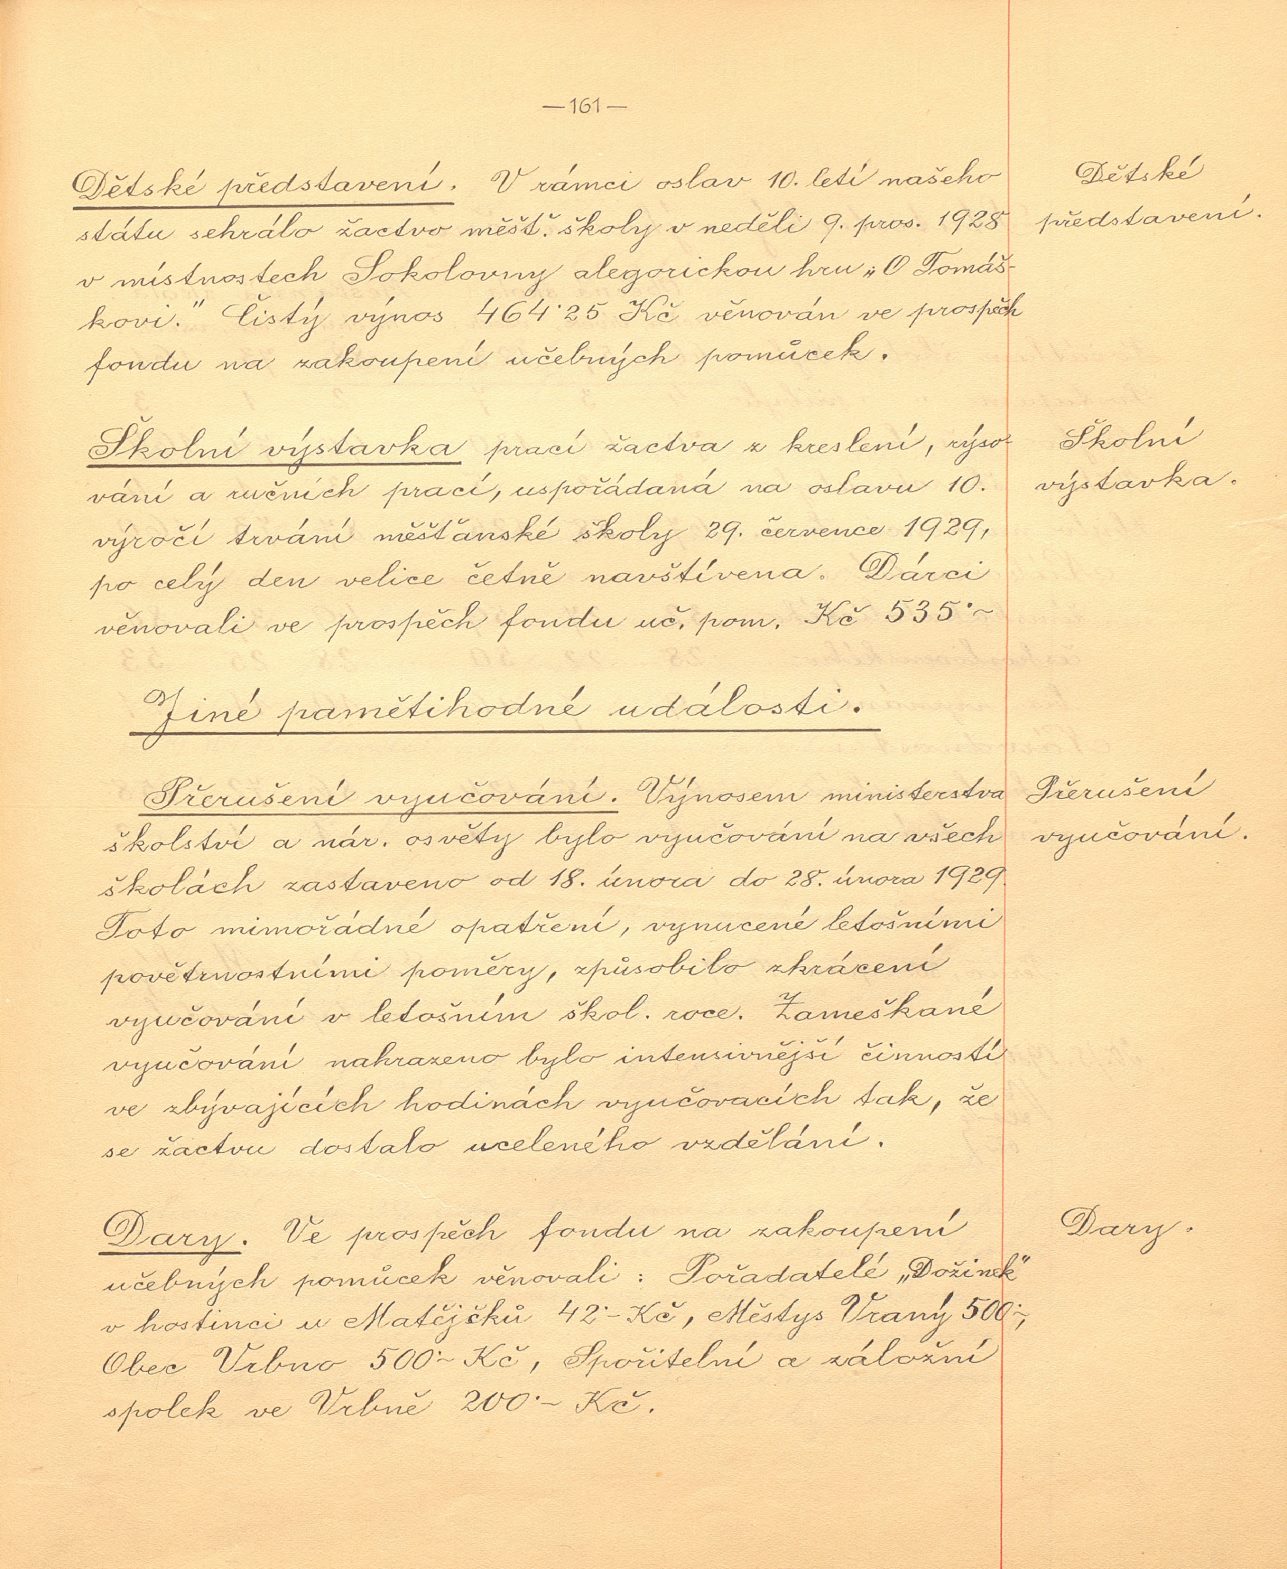 —161—
Dětské představení. V rámci oslav 10. letí našeho
státu sehrálo žactvo měšť. školy v neděli 9. pros. 1928
v místnostech Sokolovny alegorickou hru „O Tomáš-
kovi." Čistý výnos 464·25 Kč věnován ve prospěch
fondu na zakoupení učebných pomůcek.
Dětské
představení.
Školní výstavka prací žactva z kreslení, rýso-
vání a ručních prací, uspořádaná na oslavu 10.
výročí trvání měšťanské školy 29. července 1929,
po celý den velice četně navštívena. Dárci
věnovali ve prospěch fondu uč. pom. Kč 535·–
Školní
výstavka.
Jiné pamětihodné události.
Přerušení vyučování. Výnosem ministerstva
školství a nár. osvěty bylo vyučování na všech
školách zastaveno od 18. února do 28. února 1929.
Toto mimořádné opatření, vynucené letošními
povětrnostními poměry, způsobilo zkrácení
vyučování v letošním škol. roce. Zameškané
vyučování nahrazeno bylo intensivnější činností
ve zbývajících hodinách vyučovacích tak, že
se žactvu dostalo uceleného vzdělání.
Přerušení
vyučování.
Dary. Ve prospěch fondu na zakoupení
učebných pomůcek věnovali : Pořadatelé „Dožinek"
v hostinci u Matějčků 42·– Kč, Městys Vraný 500·–,
Obec Vrbno 500·– Kč, Spořitelní a záložní
spolek ve Vrbně 200·– Kč.
Dary.